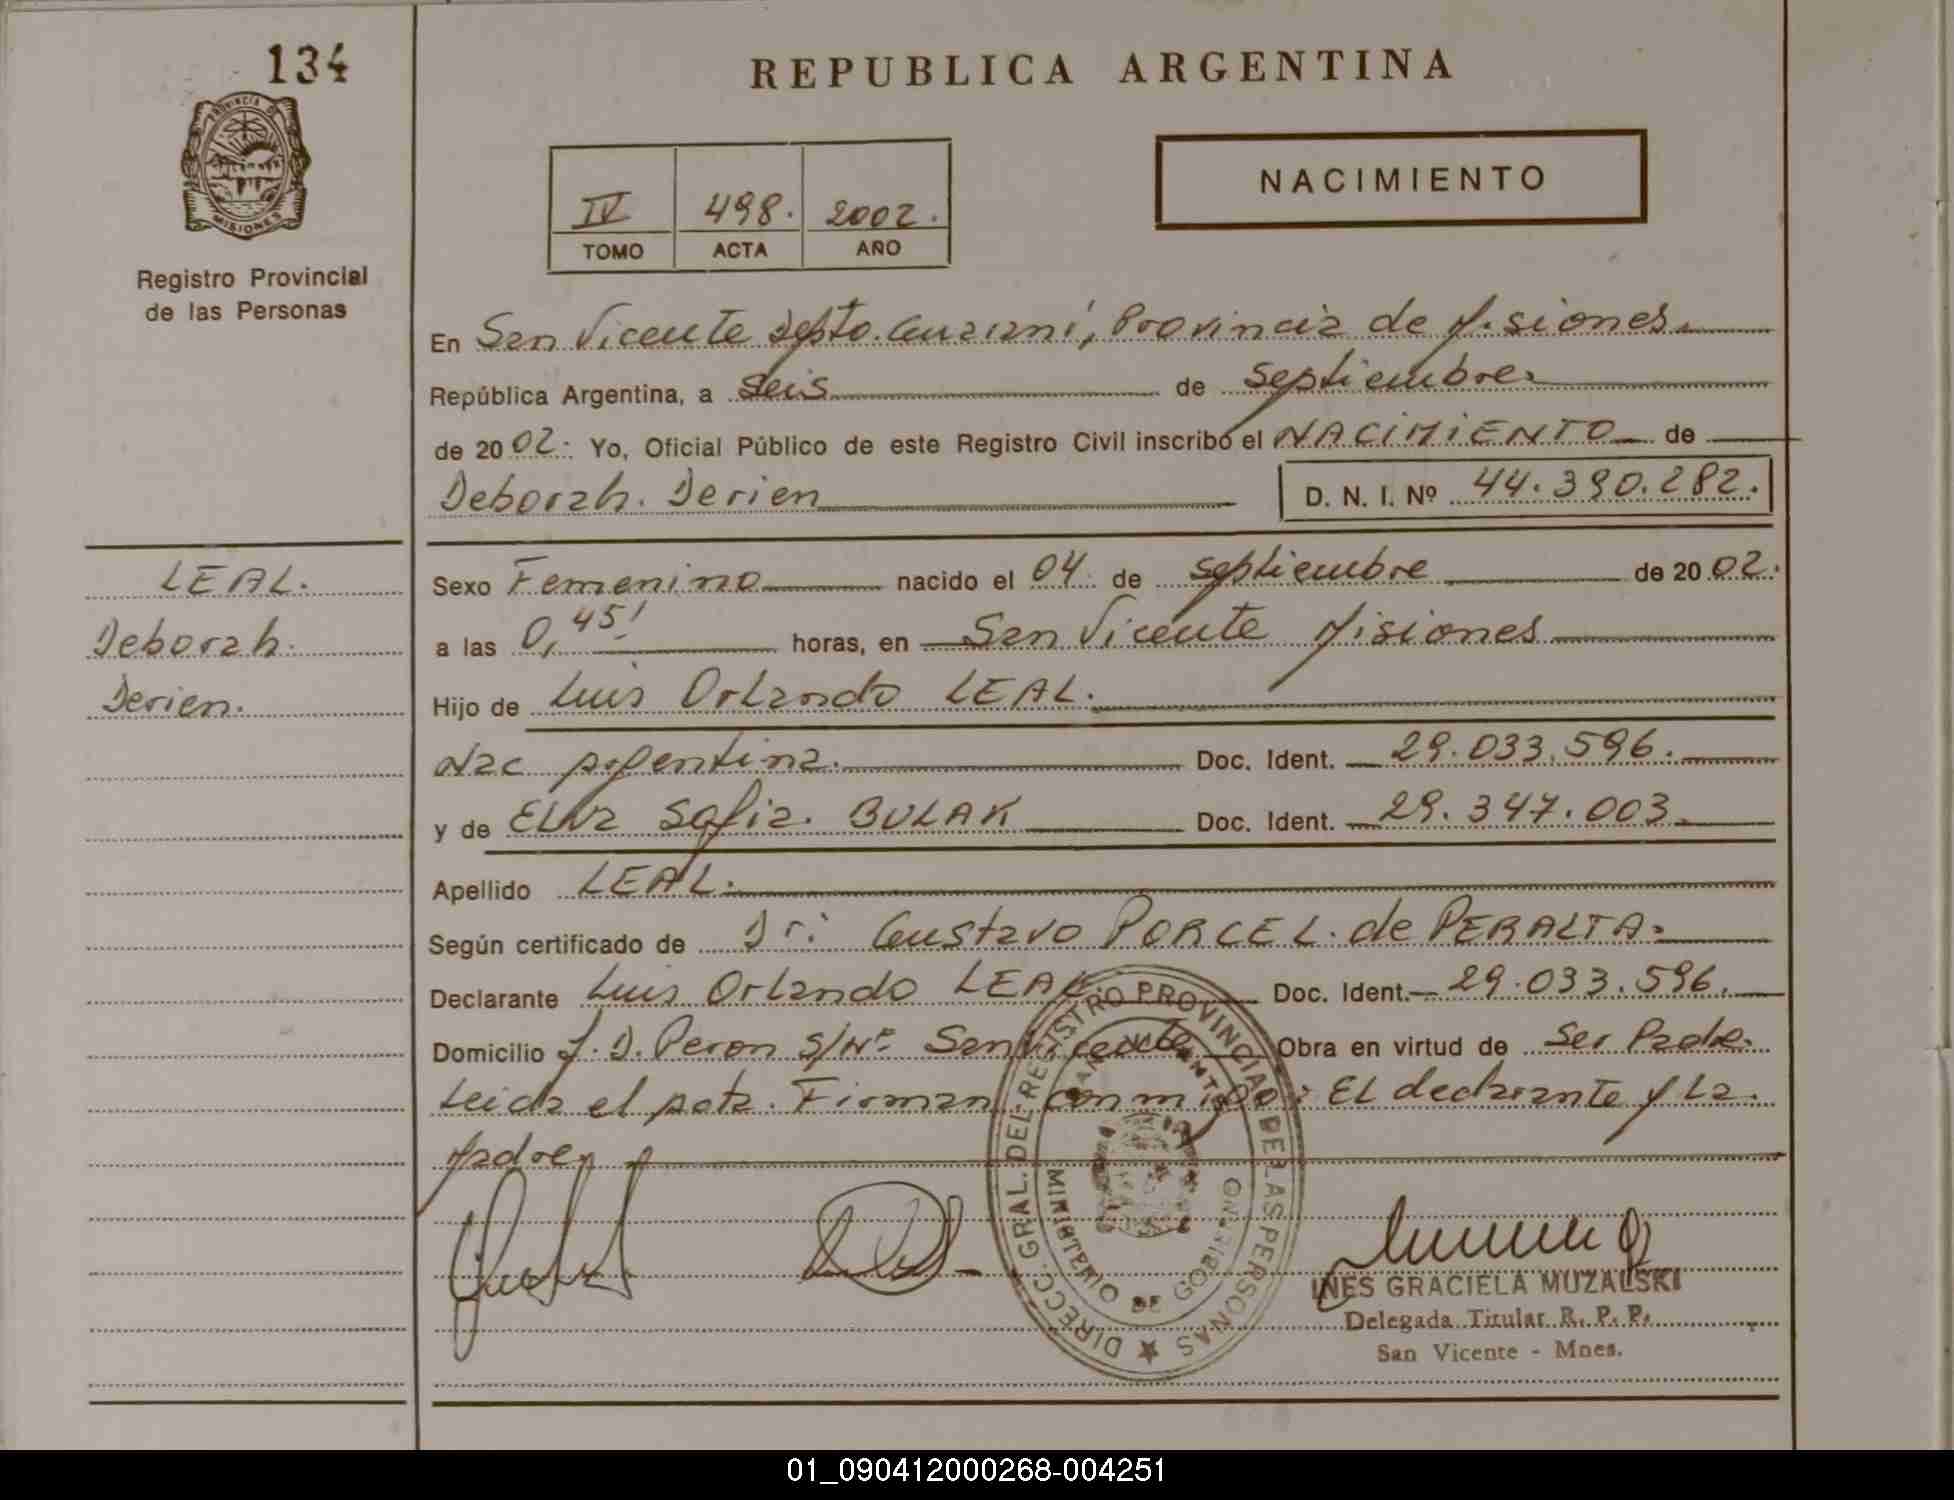 134
PROVINCIA DE
MISIONES
Registro Provincial
de las Personas
REPUBLICA ARGENTINA
IV 498. 2002.
TOMO ACTA AÑO
NACIMIENTO
En San Vicente Depto. Guaraní, Provincia de Misiones.
República Argentina, a Seis de Septiembre.
de 2002. Yo, Oficial Público de este Registro Civil inscribo el NACIMIENTO de
Deborah. Derien D. N. I. Nº 44.390.282.
LEAL.
Deborah.
Derien.
Sexo Femenino nacido el 04 de septiembre de 2002.
a las 0,45' horas, en San Vicente Misiones
Hijo de Luis Orlando LEAL.
Nac Argentina. Doc. Ident. 29.033.596.
y de Elva Sofia. BULAK Doc. Ident. 29.347.003.
Apellido LEAL.
Según certificado de Dr: Gustavo PORCEL. de PERALTA.
Declarante Luis Orlando LEAL Doc. Ident. 29.033.596.
Domicilio J. D. Peron S/Nº San Vicente Obra en virtud de Ser Padre.
Leida el acta. Firman conmigo: El declarante y La.
Madre
DIRECC. GRAL. DEL REGISTRO PROVINCIAL DE LAS PERSONAS
MINISTERIO DE GOBIERNO
INES GRACIELA MUZALSKI
Delegada Titular R. P. P.
San Vicente - Mnes.
01_090412000268-004251